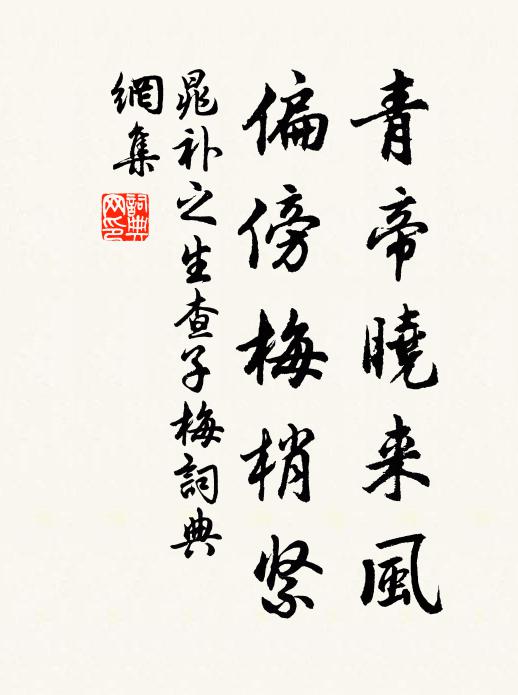 青帝曉来風
偏傍梅梢緊
晁补之生查子梅詞典
網集
詞典
网印